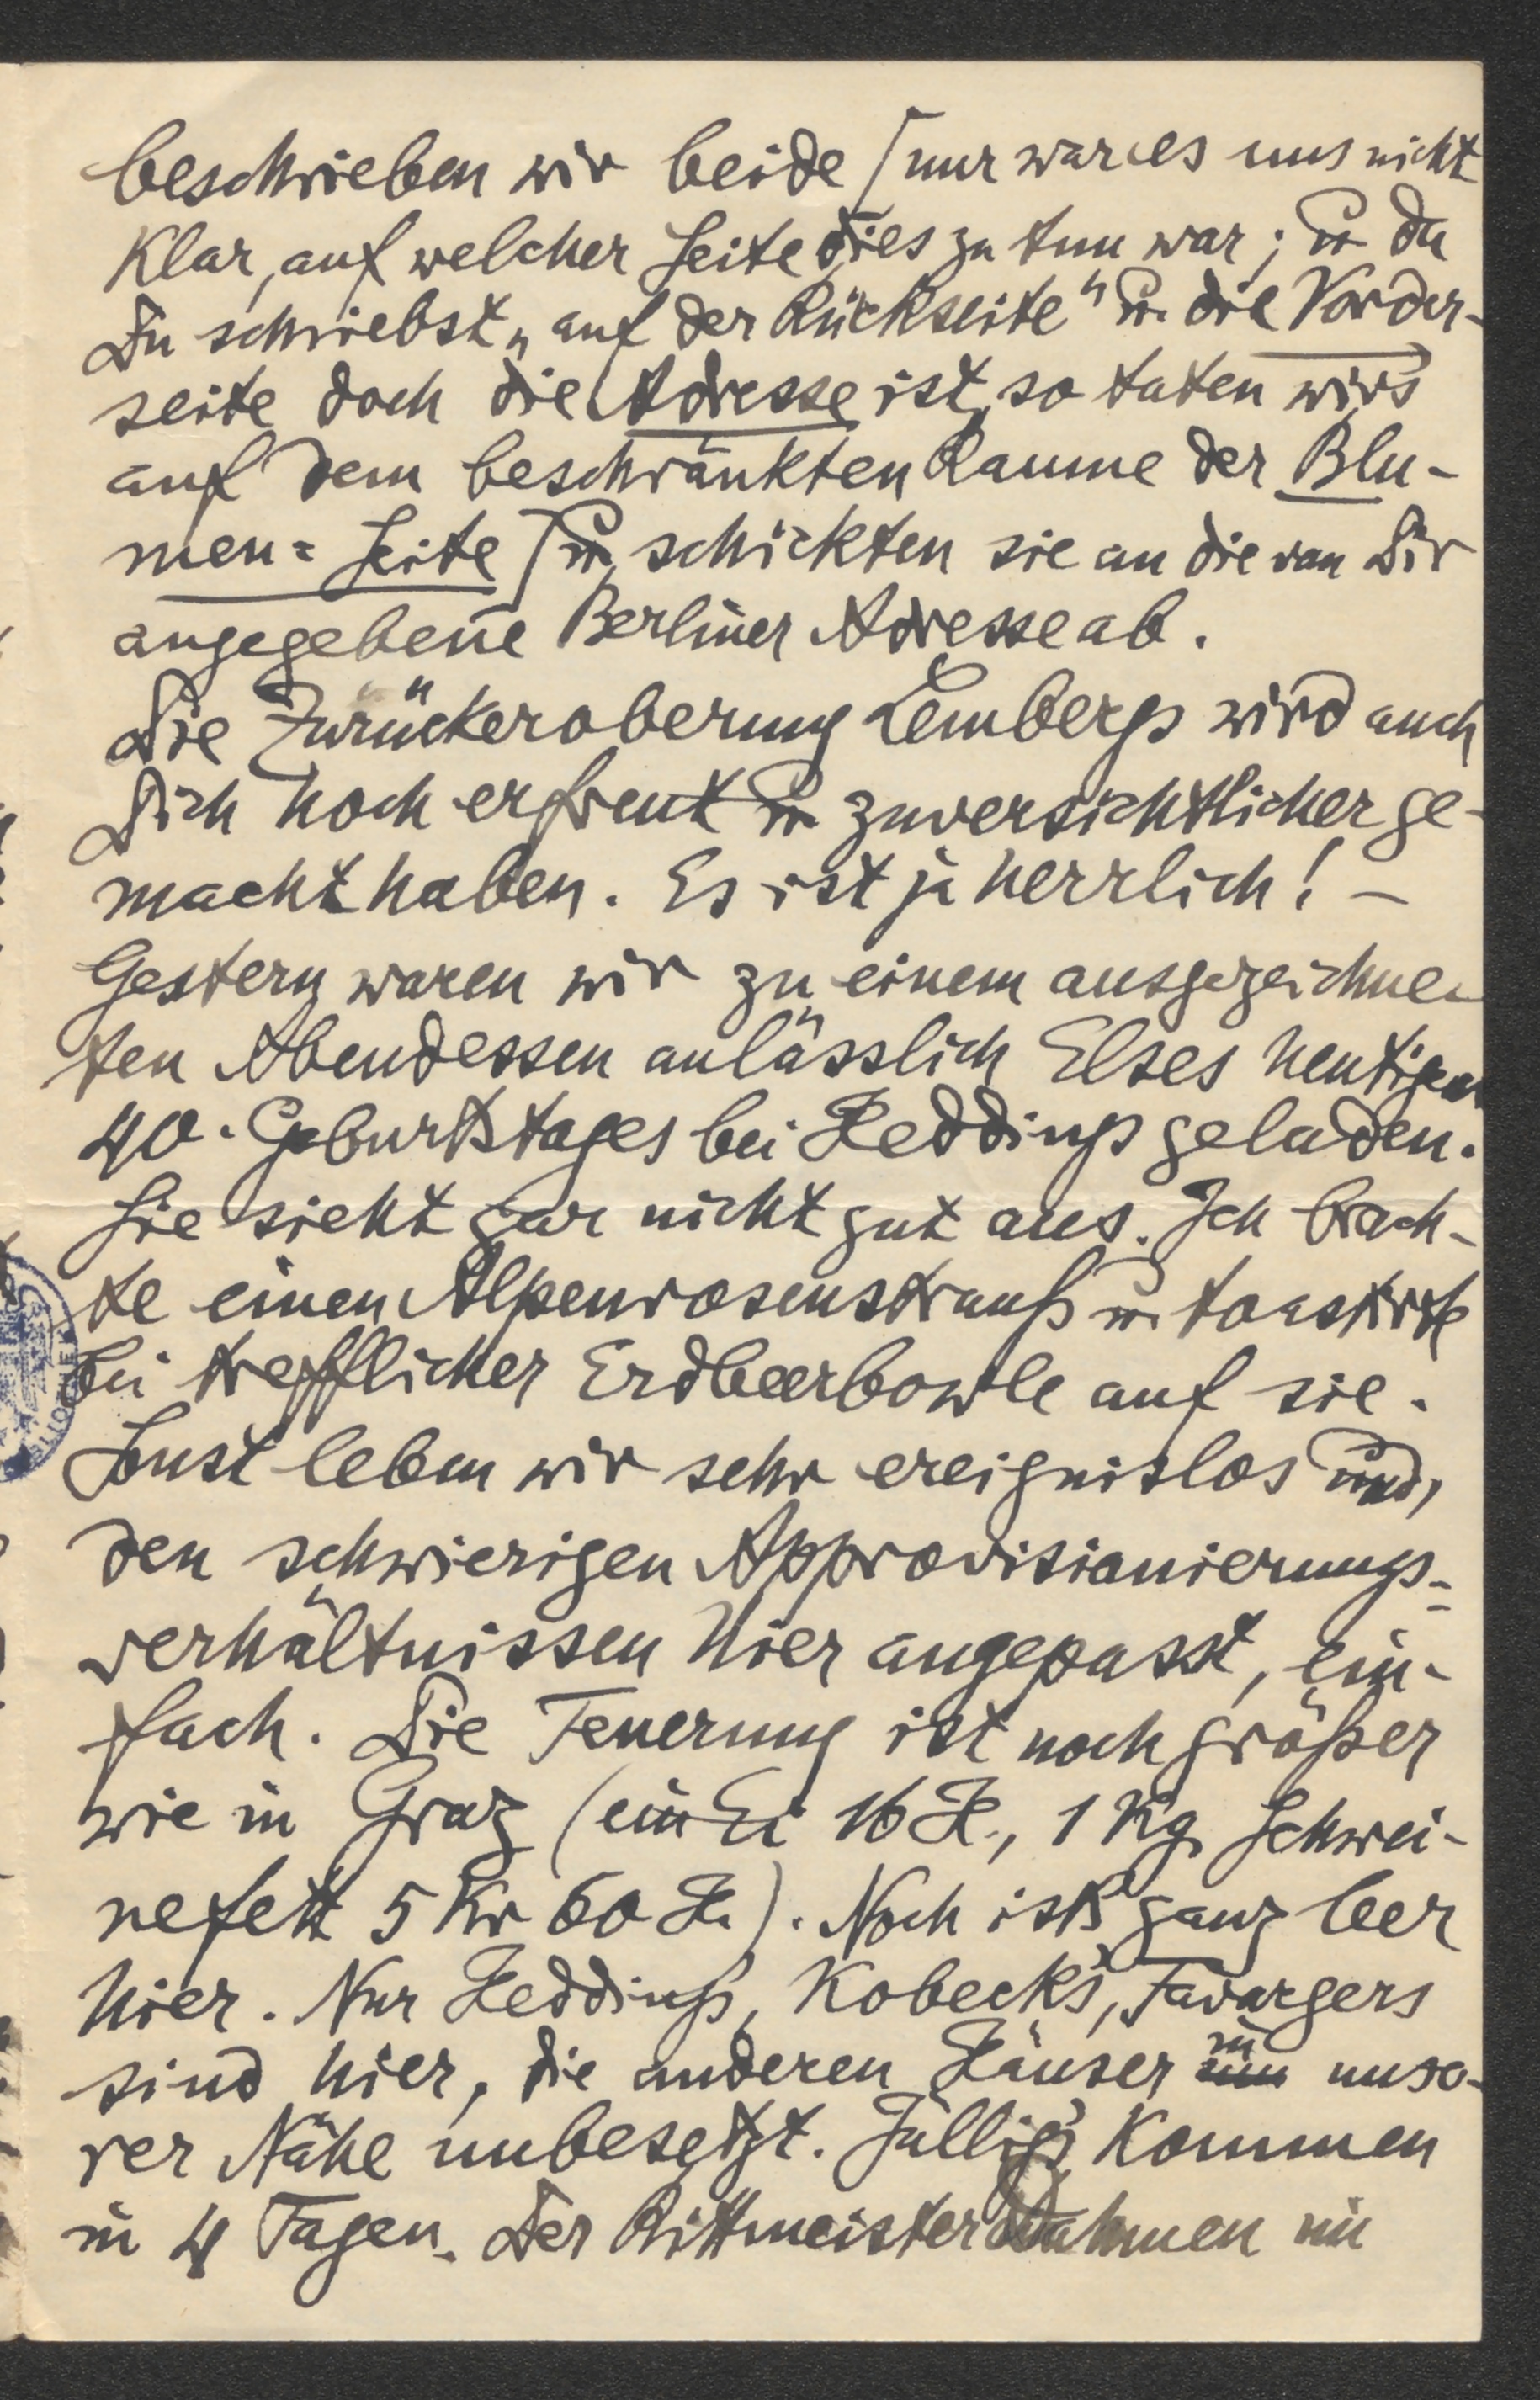 beschrieben wir beide [nur war es uns nicht
klar, auf welcher Seite dies zu tun war; u. da
Du schriebst „auf der Rückseite" u. die Vorder-
seite doch die Adresse ist, so taten wirs
auf dem beschränkten Raume der Blu-
men=Seite] u. schickten sie an die von Dir
angegebene Berliner Adresse ab.
Die Zurückeroberung Lembergs wird auch
Dich hoch erfreut u. zuversichtlicher ge-
macht haben. Es ist ja herrlich! –
Gestern waren wir zu einem ausgezeichne-
ten Abendessen anlässlich Elses heutigen
40. Geburtstages bei Heddings geladen.
Sie sieht gar nicht gut aus. Ich brach-
te einen Alpenrosenstrauß u. toastirte
bei trefflicher Erdbeerbowle auf sie.
Sonst leben wir sehr ereignislos und,
den schwierigen Approvisionierungs=
verhältnissen hier angepasst, ein-
fach. Die Teuerung ist noch größer
wie in Graz (ein Ei 16 H., 1 Kg. Schwei-
nefett 5 Kr 60 H.). Noch ists ganz leer
hier. Nur Heddings, Kobecks,
sind hier, die anderen Häuser in unse-
rer Nähe unbesetzt. Jülligs kommen
in 4 Tagen. Der Rittmeister Dahmen im